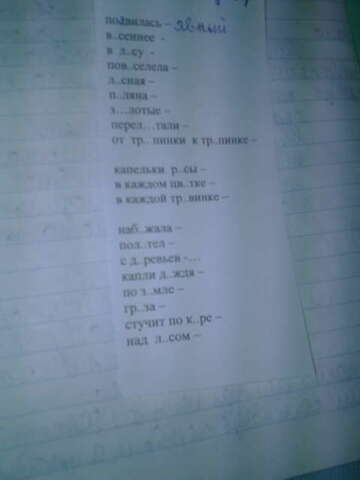 появилась – явный
в..сеннее -
в л..су -
пов..селела –
л..сная –
п..ляна –
з...лотые –
перел...тали –
от тр..пинки к тр..пинке –
капельки р..сы –
в каждом цв..тке –
в каждой тр..винке –
наб..жала –
пол..тел –
с д..ревьев -...
капли д..ждя –
по з..мле –
гр..за –
стучит по к..ре –
над л..сом –